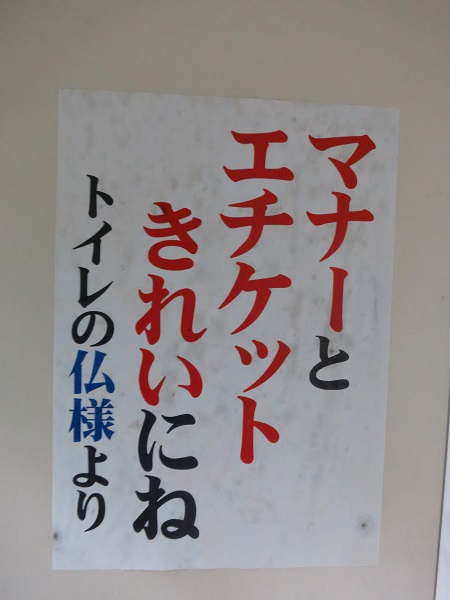 マナーと
エチケット
きれいにね
トイレの仏様より